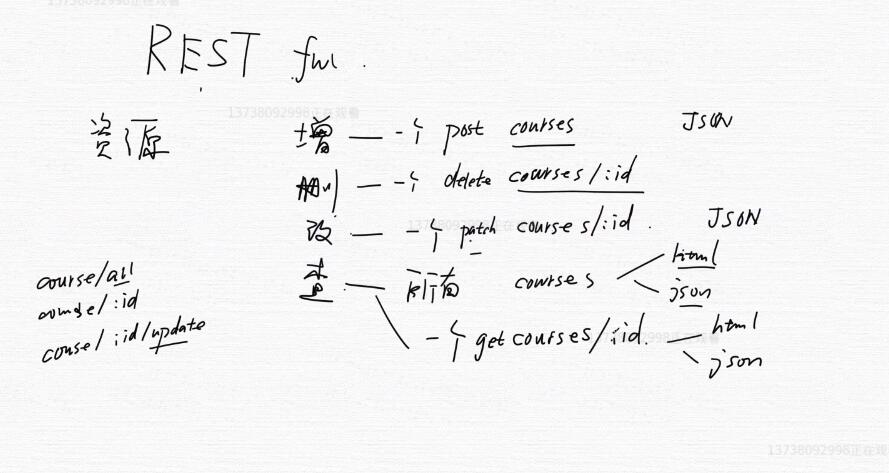 13738092998正在观看
RESTful.
13738092998正在观看
资源
增 — 一个 post courses JSON
删 — 一个 delete courses/:id
改 — 一个 patch courses/:id. JSON
查 — 所有 courses html
json
一个 get courses/:id. — html
json
course/all
course/:id
couse/:id/update
13738092998正在观看
13738092998正在观看
13738092998正在观